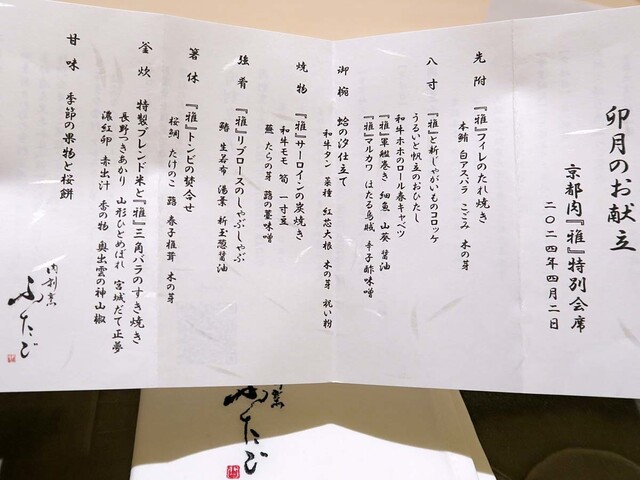 卯月のお献立
京都肉『雅』特別会席
二〇二四年四月二日
先附 『雅』フィレのたれ焼き
本鮪 白アスパラ こごみ 木の芽
八寸 『雅』と新じゃがいものコロッケ
うるいと帆立のおひたし
和牛ホホのロール春キャベツ
『雅』軍艦巻き 細魚 山葵 醤油
『雅』マルカワ ほたる烏賊 辛子酢味噌
御椀 蛤の汐仕立て
和牛タン 菜種 紅芯大根 木の芽 祝い粉
焼物 『雅』サーロインの炭焼き
和牛モモ 筍 一寸豆
蕪 たらの芽 蕗の薹味噌
強肴 『雅』リブロースのしゃぶしゃぶ
鰆 生若布 湯葉 新玉葱醤油
箸休 『雅』トンビの焚合せ
桜鯛 たけのこ 蕗 春子椎茸 木の芽
釜炊 特製ブレンド米と『雅』三角バラのすき焼き
長野つきあかり 山形ひとめぼれ 宮城だて正夢
濃紅卵 赤出汁 香の物 奥出雲の神山椒
甘味 季節の果物と桜餅
肉割烹
ふたご
ふたご